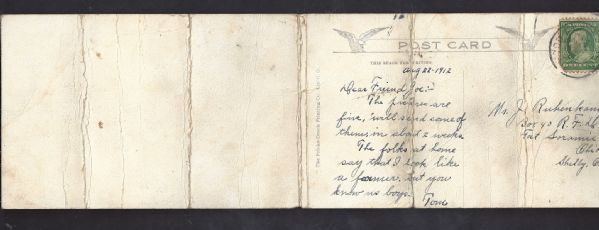 POST CARD
THIS SPACE FOR WRITING
Aug 22-1912
Dear Friend Joe:-
The pictures are
fine, will send some of
them, in about 2 weeks
The folks at home
say that I look like
a farmer, but you
know us boys.
Tom
Mr. J.
Box 40 R.
Fort Loramie
Shelby